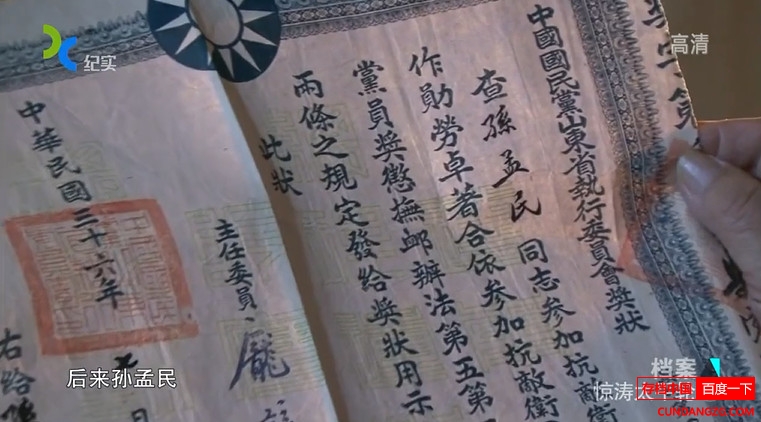 纪实
高清
中國國民黨山東省執行委員會獎狀
查孫孟民同志參加抗敵衛
作勛勞卓著合依參加抗敵衛
黨員獎懲撫卹辦法第五第
兩條之規定發給獎狀用示
此狀
主任委員 龐
中華民國三十六年 月
右給
后来孙孟民
档案
惊涛太
存档中国 百度一下
CUNDANGZG.COM